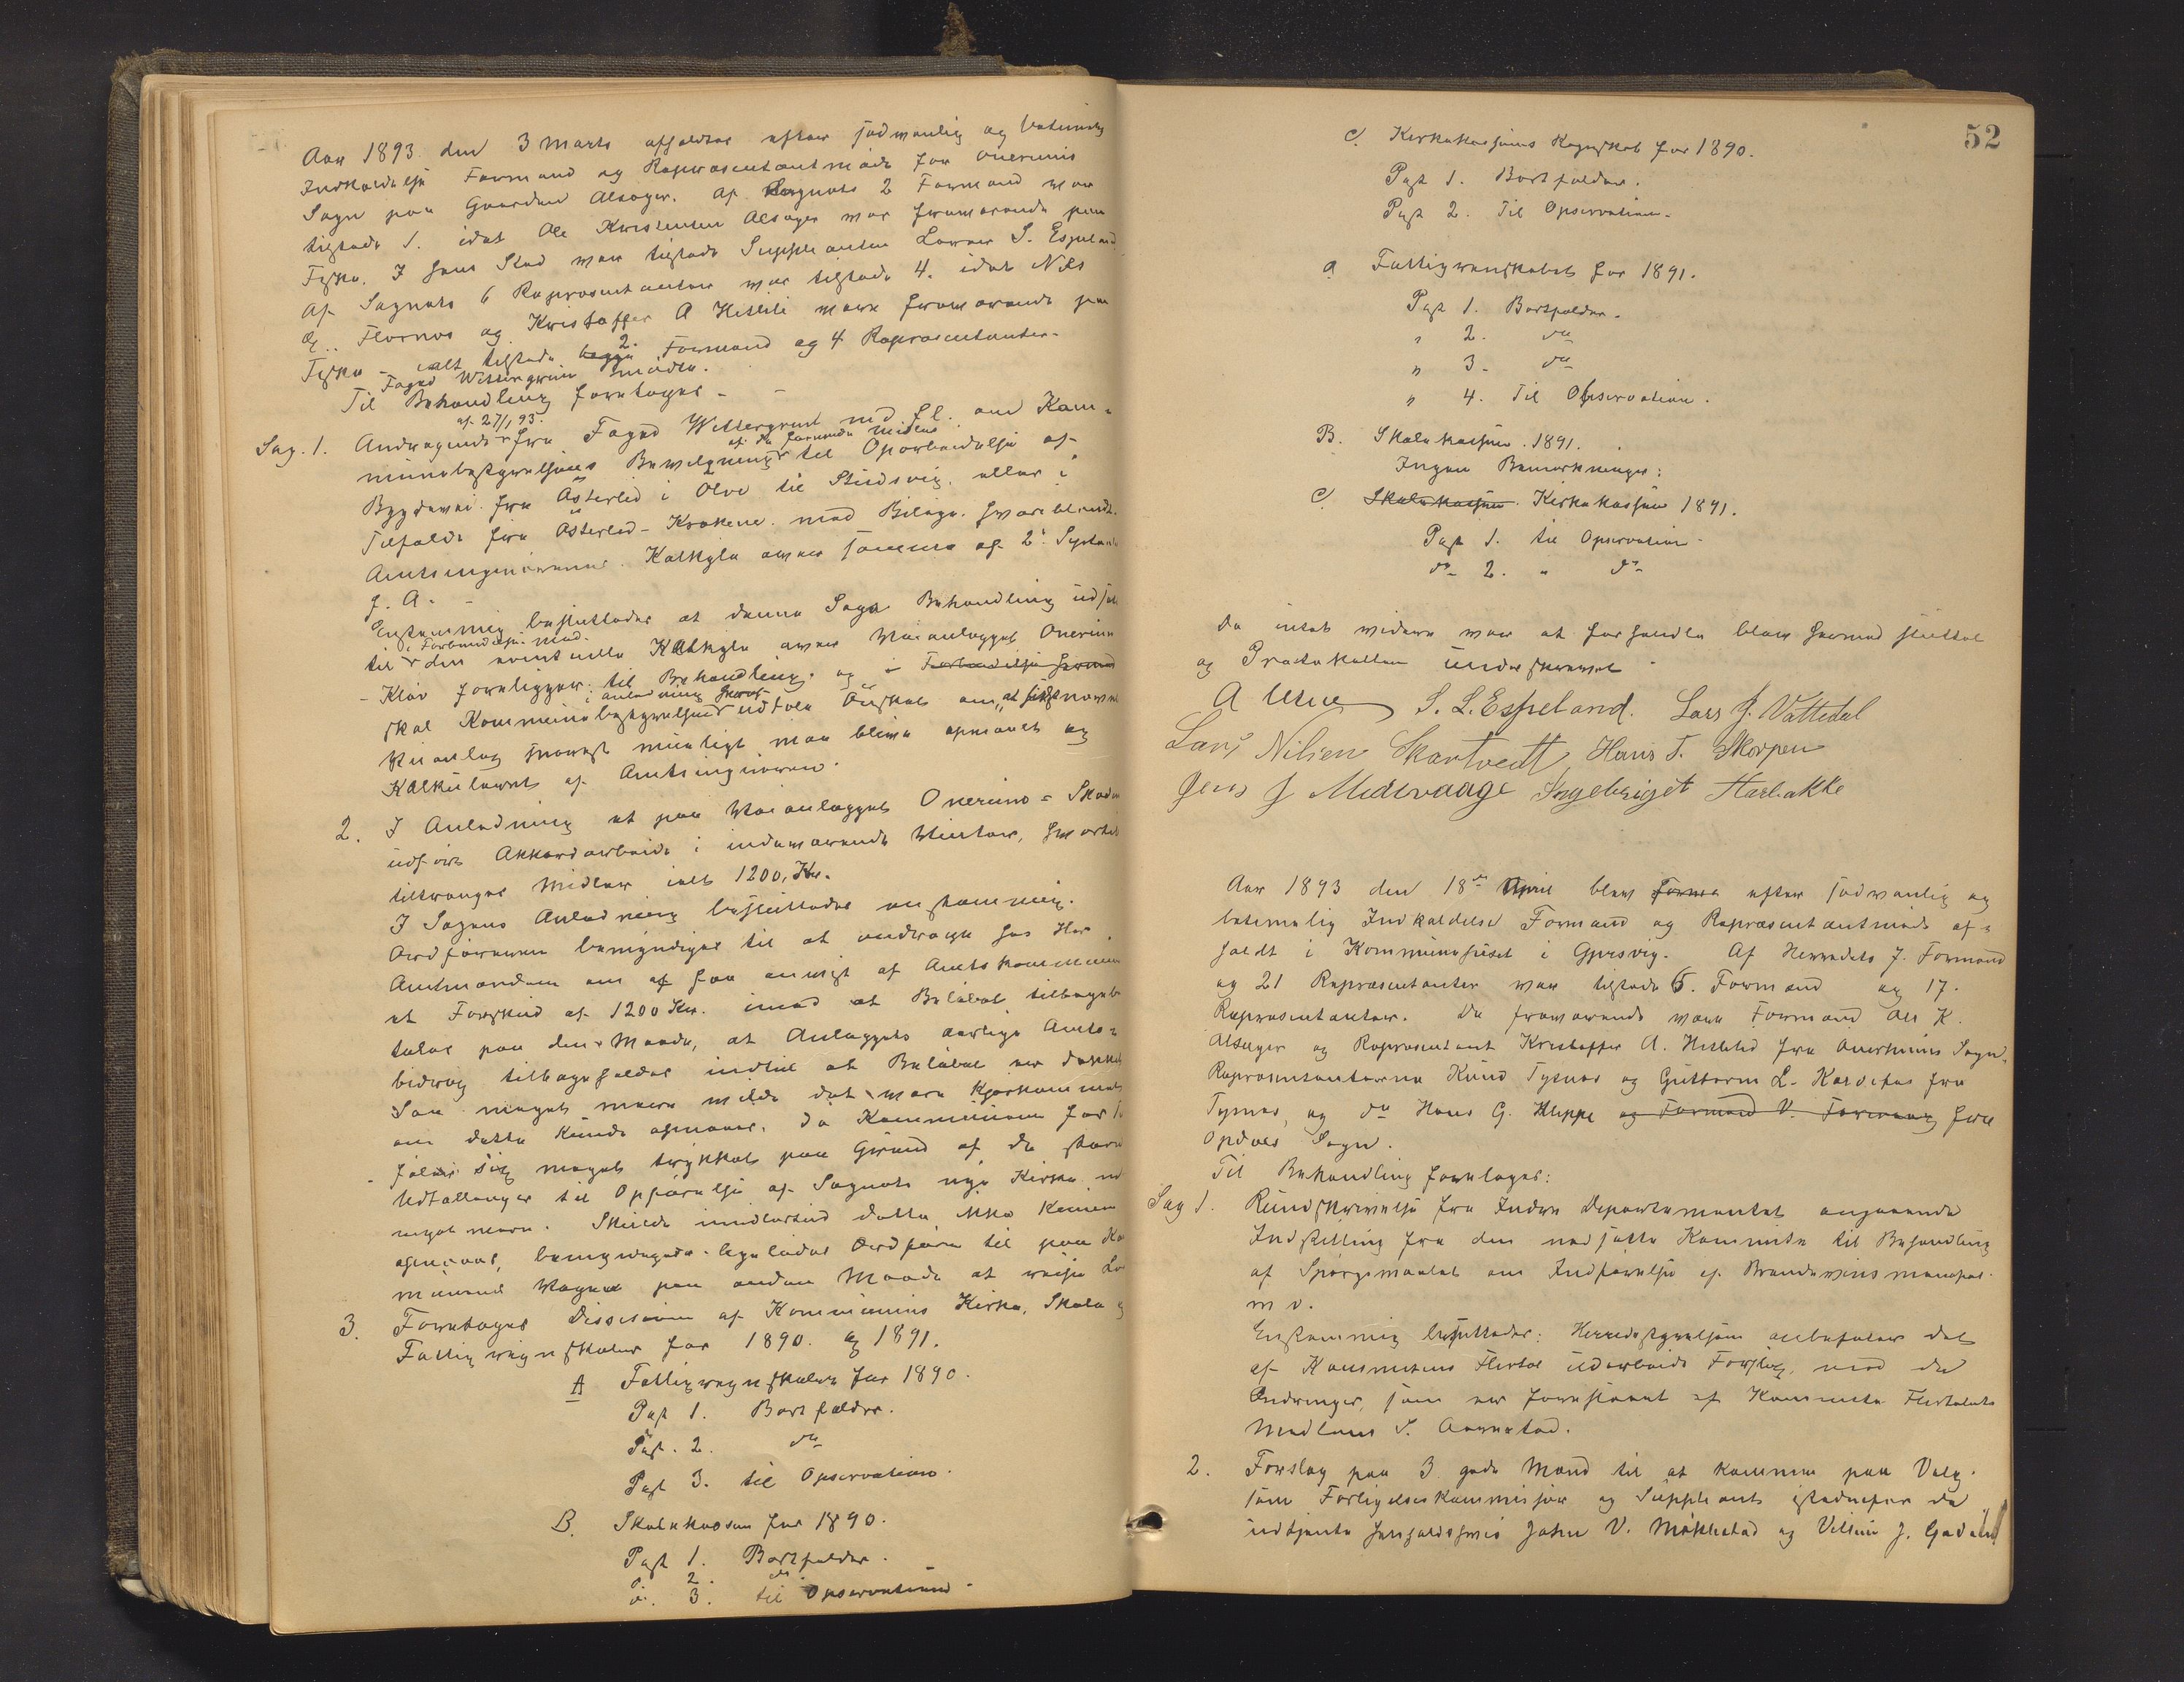 Aar 1893 den 3 Marts afholdtes efter sedvanlig og betimelig
Indkaldelse Formand og Repræsentantmøde for Onerems
Sogn paa Gaarden Alsager. Af Sognets 2 Formænd var
tilstede 1. idet Ole Kristensen Alsager var fraværende paa
Fiske. I hans Sted var tilstede Suppleanten Lars S. Espeland
Af Sognets 6 Repræsentanter var tilstede 4. idet Nils
Flornes og Kristoffer A Hetleli vare fraværende paa
Fiske - ialt tilstede begge 2. Formænd og 4 Repræsentanter.
Foged Wettergren mødte.
Til Behandling foretoges -
af 27/1 93.
Sag. 1. Andragende fra Foged Wettergrens med fl. om Kom-
munebestyrelsens Bevilgning af de fornødne Midler til Oparbeidelse af
Bygdevei fra Østerlid i Ølve til Stusvig, eller i
Tilfælde fra Østerlid - Krokene. med Bilage hvoriblandt
Amtsingeniørens Kalkyle over samme af 2'
J. A. -
Enstemmig besluttedes at denne Sags Behandling
til i Forbindelse med den eventuelle Kalkyle over Veianlægget Onerem
- Kløv foreligger til Behandling. og i Forbindelse hermed
skal Kommunebestyrelsen i anledning heraf udtale Ønsket om, at sidstnævnte
Veianlæg snarest muligt maa blive opmaalt og
Kalkuleret af Amtsingeniøren.
2. I Anledning at paa Veianlægget Onerem = Skaden
udført Akkordarbeide i indeværende Vinter, hvortil
tiltrænges Midler ialt 1200, Kr.
I Sagens Anledning besluttedes enstemmig.
Ordføreren bemyndiges til at andrage hos Hr.
Amtmanden om at faa anvist af Amtskommunen
et Forskud af 1200 Kr. imod at Beløbet tilbagebe
tales paa den Maade, at Anlæggets aarlige Amts-
bidrag tilbageholdes indtil at Beløbet er dækket
Saa meget mere vilde det være kjærkomment
om dette kunde opnaaes, da Kommunen for
føler sig meget trykket paa Grund af de store
Udtællinger til Opførelse af Sognets nye Kirke
meget mere. Skulde imidlertid dette ikke kunne
opnaaes, bemyndigedes ligeledes Ordføren til paa Kom
munens Vegne paa anden Maade at reise
3. Foretoges Decision af Kommunens Kirke, Skole og
Fattigregnskaber for 1890 og 1891.
A Fattigregnskabet for 1890.
Post 1. Bortfalder.
Post. 2. do
Post 3. til Opservation.
B. Skolekassen for 1890.
Post 1. Bortfalder.
" 2. do
" 3. til Opservation.
52
C. Kirkekassens Regnskab for 1890.
Post 1. Bortfalder.
Post 2. Til Opservation.
a Fattigregnskabet for 1891.
Post 1. Bortfalder.
" 2. do
" 3. do
" 4. Til Observation.
B. Skolekassen. 1891.
Ingen Bemærkninger:
C. Skolekassen. Kirkekassen 1891.
Post 1. til Opservation
do 2. " do
Da intet videre var at forhandle blev hermed sluttet
og Protokollen underskrevet
A Uene S. L. Espeland. Lars J. Vattedal
Lars Nilsen Skartvedt, Hans T. Skorpen
Jens J Midtvaage Ingebrigt Harbakke
Aar 1893 den 18de April blev efter sedvanlig og
betimelig Indkaldelse Formand og Repræsentantmøde af-
holdt i Kommunehuset i Gjersvig. Af Herredets 7. Formænd
og 21 Repræsentanter var tilstede 6. Formænd og 17.
Repræsentanter. De fraværende vare Formand Ole K.
Alsager og Repræsentant Kristoffer A. Hetleli fra Onerems Sogn,
Repræsentanterne Knud Tysnes og Guttorm L. fra
Tysnes, og do Hans G. Kleppe og Formand V. fra
Opdals Sogn.
Til Behandling foretoges:
Sag 1. Rundskrivelse fra Indre Departementet angaaende
Indstilling fra den nedsatte Komite til Behandling
af Spørgsmaalet om Indførelse af Brændevinsmonopol
m v.
Enstemmig besluttedes: Herredsstyrelsen anbefaler det
af Kommiteens Flertal udarbeide Forslag, med de
Ændringer, som er foreslaaet af Kommite Flertalets
Medlem S. Aarrestad.
2. Forslag paa 3 gode Mænd til at komme paa Valg
som Forligelseskommissær og Suppleant istedenfor de
udtjente henholdsvis John V. Møklestad og Villum J. Godø